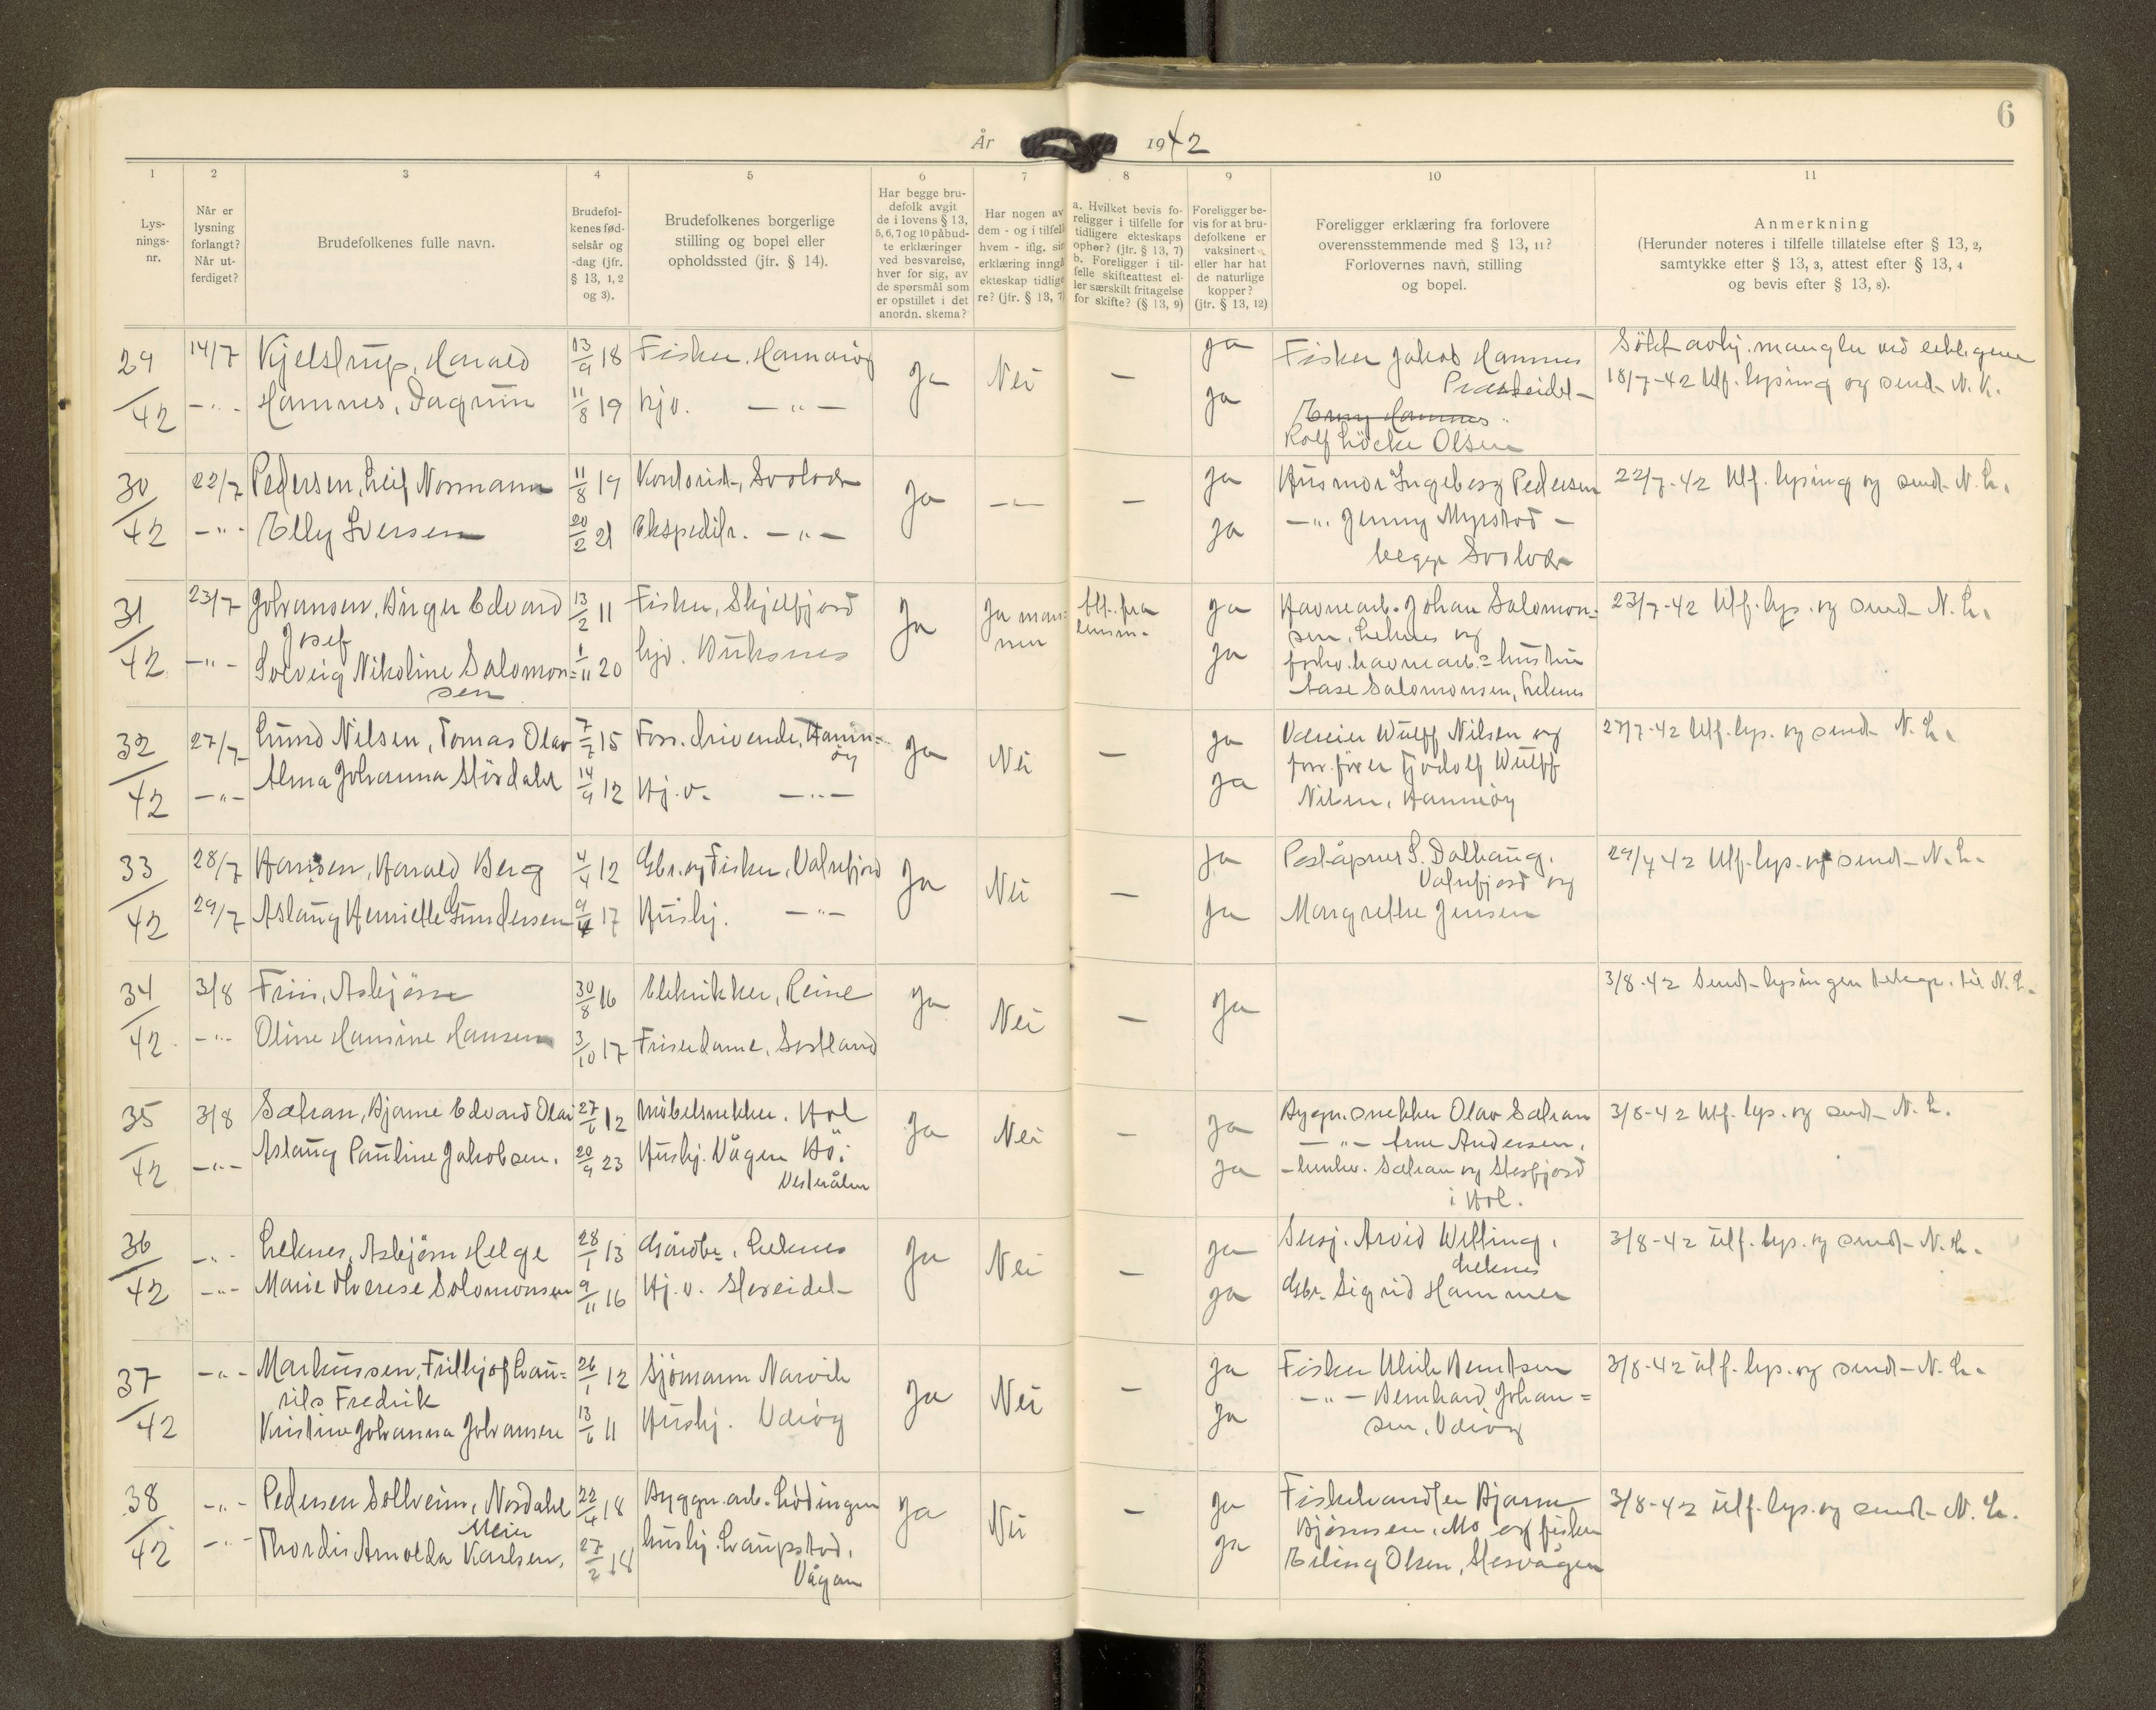 6
År 1942
1 2 3 4 5 6 7 8 9 10 11
Lys-
nings-
nr.
Når er
lysning
forlangt?
Når ut-
ferdiget?
Brudefolkenes fulle navn.
Brudefol-
kenes fød-
selsår og
-dag (jfr.
§ 13, 1, 2
og 3).
Brudefolkenes borgerlige
stilling og bopel eller
opholdssted (jfr. § 14).
Har begge bru-
defolk avgit
de i lovens § 13,
5, 6, 7 og 10 påbud-
te erklæringer
ved besvarelse,
hver for sig, av
de spørsmål som
er opstillet i det
anordn. skema?
Har nogen av
dem - og i tilfell
hvem - iflg. sin
erklæring inngå
ekteskap tidlige
re? (jfr. § 13, 7)
a. Hvilket bevis fo-
religger i tilfelle for
tidligere ekteskaps
ophør? (jfr. § 13, 7)
b. Foreligger i til-
felle skifteattest el-
ler særskilt fritagelse
for skifte? (§ 13, 9)
Foreligger be-
vis for at bru-
defolkene er
vaksinert
eller har hat
de naturlige
kopper?
(jfr. § 13, 12)
Foreligger erklæring fra forlovere
overensstemmende med § 13, 11?
Forlovernes navn, stilling
og bopel.
Anmerkning
(Herunder noteres i tilfelle tillatelse efter § 13, 2,
samtykke efter § 13, 3, attest efter § 13, 4
og bevis efter § 13, 8).
29/42 14/7 Kjelstrup, Harald 13/9 18 Fisker, Hamnöy Ja Nei — Ja Fisker Jakob Hamnes
Søkt avhj. mangler ved
—"— Hamnes, Dagrun 11/8 19 hjv. —"— Ja
18/7-42 Utf. lysing og sendt N. L.
Rolf Löcke Olsen
30/42 22/7 Pedersen, Leif Normann 11/8 19 Kontorist, Svolvær Ja —"— — Ja Husmor Ingeborg Pedersen 22/7-42 Utf. lysing og sendt N. L.
—"— Elly Iversen 20/2 21 Ekspeditr. —"— Ja —"— Jenny Myrstad —
begge Svolvær
31/42 23/7 Johansen, Birger Edvard 13/2 11 Fisker, Skjelfjord Ja Ja man- Att. fra Ja Havnearb. Johan Salomon- 23/7-42 Utf. lys. og sendt N. L.
Josef nen lensm. sen, Leknes og
—"— Solveig Nikoline Salomon= 1/11 20 hjv. Buksnes Ja forhv. havnearb.= hustru
sen Aase Salomonsen, Leknes
32/42 27/7 Lund Nilsen, Tomas Olav 7/7 15 Forr. drivende, Hamn= Ja Nei — Ja Væreier Wulff Nilsen og 27/7-42 Utf. lys. og sendt N. L.
öy forr.förer Tjodolf Wulff
—"— Alma Johanna Stördahl 14/9 12 Hj.v. —"— Ja Nilsen, Hamnöy
33/42 28/7 Hansen, Harald Berg 4/4 12 Gbr. og Fisker, Valnfjord Ja Nei — Ja Poståpner S. Dalhaug, 29/7 42 Utf. lys. og sendt N. L.
Valnfjord og
29/7 Aslaug Henriette Gundersen 9/4 17 Hushj. —"— Ja Margrethe Jensen
34/42 3/8 Friis, Asbjörn 30/8 16 Elektrikker, Reine Ja Nei — Ja 3/8-42 Sendt lysingen telegr. til N. L.
—"— Oline Hansine Hansen 3/10 17 Friserdame, Sortland
35/42 3/8 Sætran, Bjarne Edvard Olav 27/6 12 Möbelsnekker. Hol Ja Nei — Ja Bygn.snekker Olav Sætran 3/8-42 Utf. lys. og sendt N. L.
—"— Arne Andersen,
—"— Aslaug Pauline Jakobsen. 20/9 23 Hushj. Vågen Bö i Ja —henhv. Sætran og Storfjord
Vesterålen i Hol.
36/42 —"— Leknes, Asbjörn Helge 28/1 13 Gårdbr., Leknes Ja Nei — Ja Susj. Arvid Welling, 3/8-42 Utf. lys. og sendt N. L.
Leknes
—"— Marie Therese Solomonsen 9/11 16 Hj.v. Storeidet Ja Gbr. Sigrid Hammer
37/42 —"— Markussen, Frithjof Lau= 26/1 12 Sjömann Narvik Ja Nei — Ja Fisker Ulrik Berntsen 3/8-42 Utf. lys. og sendt N. L.
rits Fredrik —"— Bernhard Johan=
Kristine Johanna Johansen 13/6 11 Hushj. Væröy Ja sen, Værøy
38/42 —"— Pedersen Sollheim, Nordahl 22/4 18 Byggn.arb. Lödingen Ja Nei — Ja Fiskehandler Bjarne 3/8-42 Utf. lys. og sendt N. L.
Meier Björnsen, Mo og fisker
—"— Thordis Arnolda Karlsen, 27/2 18 hushj. Laupstad, Ja Erling Olsen, Storvågen
Vågan